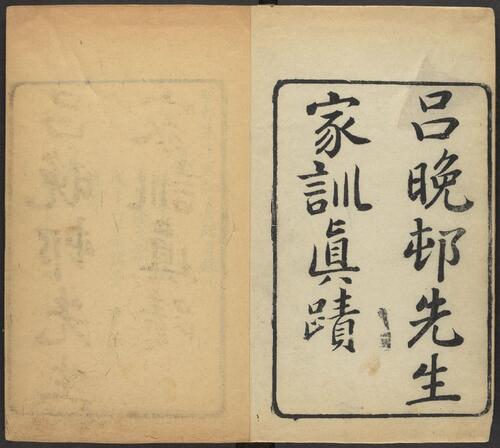 呂晚邨先生
家訓眞蹟